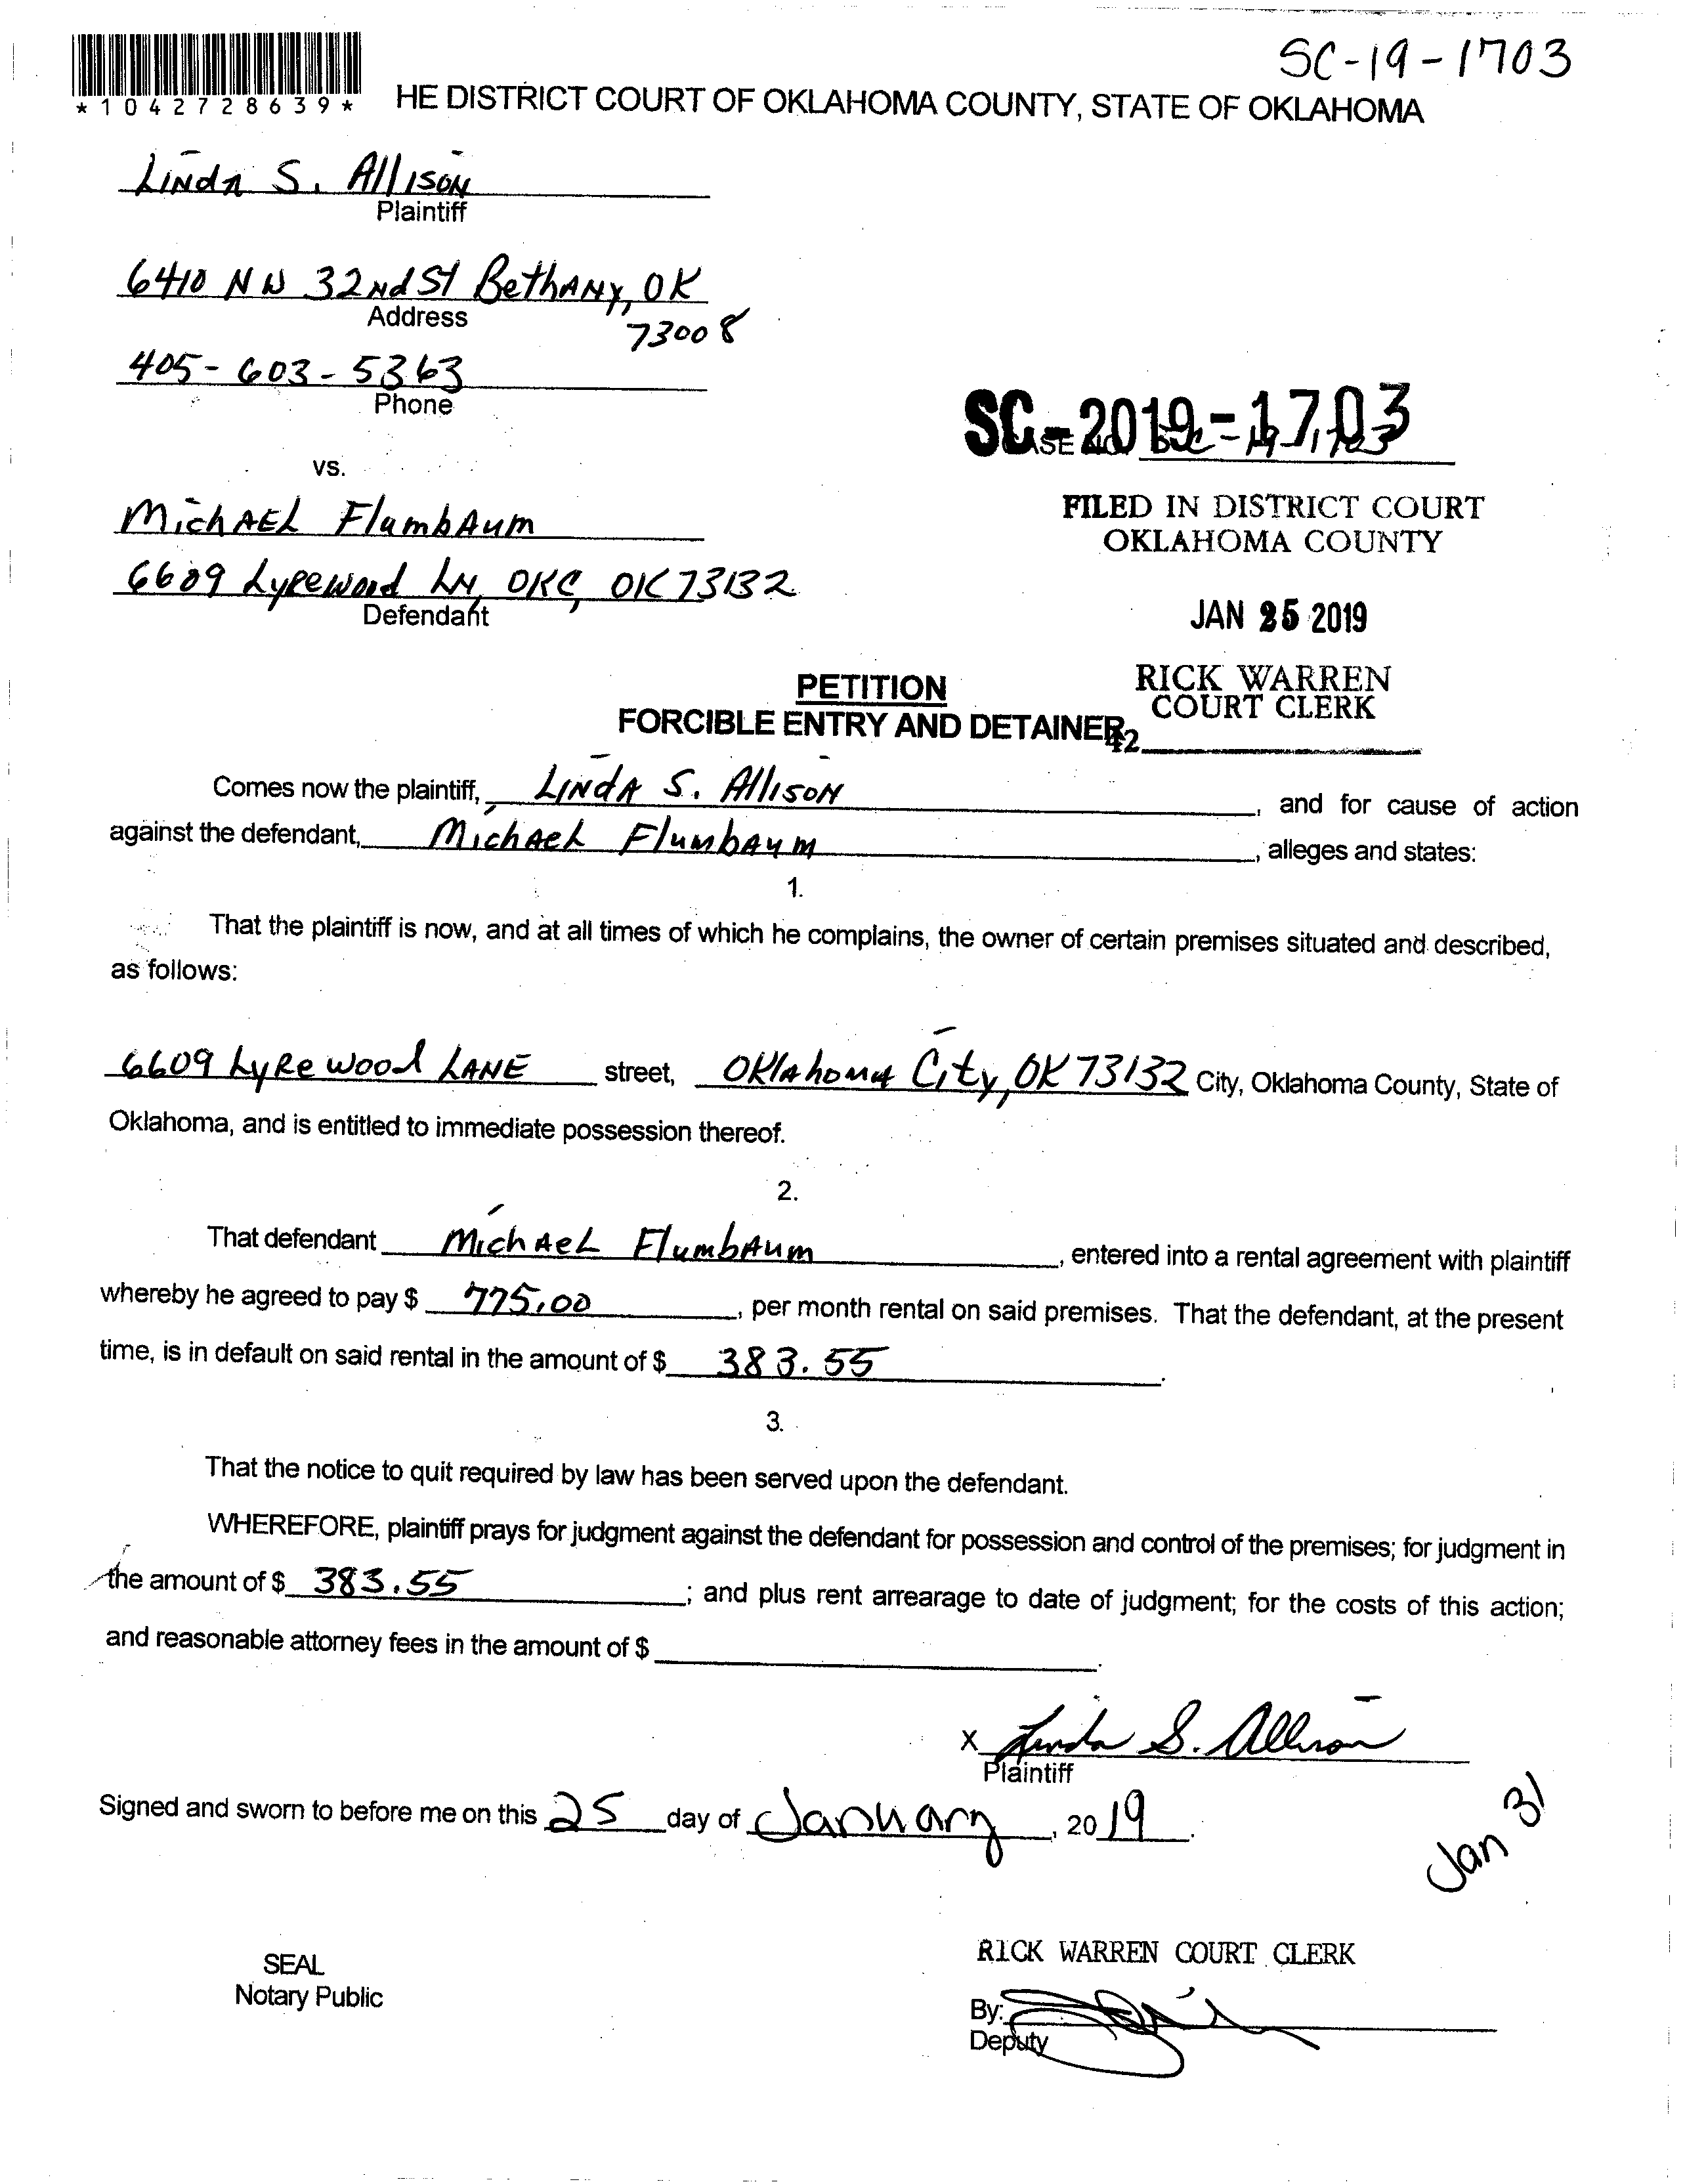 SC-19-1703
*1042728639*
HE DISTRICT COURT OF OKLAHOMA COUNTY, STATE OF OKLAHOMA
Linda S. Allison
Plaintiff
6410 NW 32nd St Bethany, OK
Address
73008
405-603-5363
Phone
SC-2019-1703
vs.
FILED IN DISTRICT COURT
OKLAHOMA COUNTY
Michael Flumbaum
6609 Lyrewood Ln, OKC, OK 73132
Defendant
JAN 25 2019
RICK WARREN
COURT CLERK
PETITION
FORCIBLE ENTRY AND DETAINER
42
Comes now the plaintiff, Linda S. Allison, and for cause of action
against the defendant, Michael Flumbaum, alleges and states:
1.
That the plaintiff is now, and at all times of which he complains, the owner of certain premises situated and described,
as follows:
6609 Lyrewood Lane street, Oklahoma City, OK 73132 City, Oklahoma County, State of
Oklahoma, and is entitled to immediate possession thereof.
2.
That defendant Michael Flumbaum, entered into a rental agreement with plaintiff
whereby he agreed to pay $ 775.00, per month rental on said premises. That the defendant, at the present
time, is in default on said rental in the amount of $ 383.55.
3.
That the notice to quit required by law has been served upon the defendant.
WHEREFORE, plaintiff prays for judgment against the defendant for possession and control of the premises; for judgment in
the amount of $ 383.55; and plus rent arrearage to date of judgment; for the costs of this action;
and reasonable attorney fees in the amount of $ .
X Linda S. Allison
Plaintiff
Signed and sworn to before me on this 25 day of January, 2019.
Jan 31
RICK WARREN COURT CLERK
SEAL
Notary Public
By:
Deputy